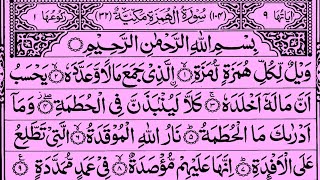 اٰیَاتُهَا ۹ (۱۰۴) سُوْرَةُ الْهُمَزَةِ مَكِّيَّةٌ (۳۲) رُكُوْعُهَا ۱
بِسْمِ اللّٰهِ الرَّحْمٰنِ الرَّحِيْمِ
وَيْلٌ لِّكُلِّ هُمَزَةٍ لُّمَزَةِ ۙ۱ الَّذِيْ جَمَعَ مَالًا وَّعَدَّدَهٗ ۙ۲ يَحْسَبُ
اَنَّ مَالَهٗۤ اَخْلَدَهٗ ۚ۳ كَلَّا لَيُنْۢبَذَنَّ فِي الْحُطَمَةِ ۖ۴ وَمَاۤ
اَدْرٰىكَ مَا الْحُطَمَةُ ؕ۵ نَارُ اللّٰهِ الْمُوْقَدَةُ ۙ۶ الَّتِيْ تَطَّلِعُ
عَلَى الْاَفْـِٕدَةِ ؕ۷ اِنَّهَا عَلَيْهِمْ مُّؤْصَدَةٌ ۙ۸ فِيْ عَمَدٍ مُّمَدَّدَةٍ ۹